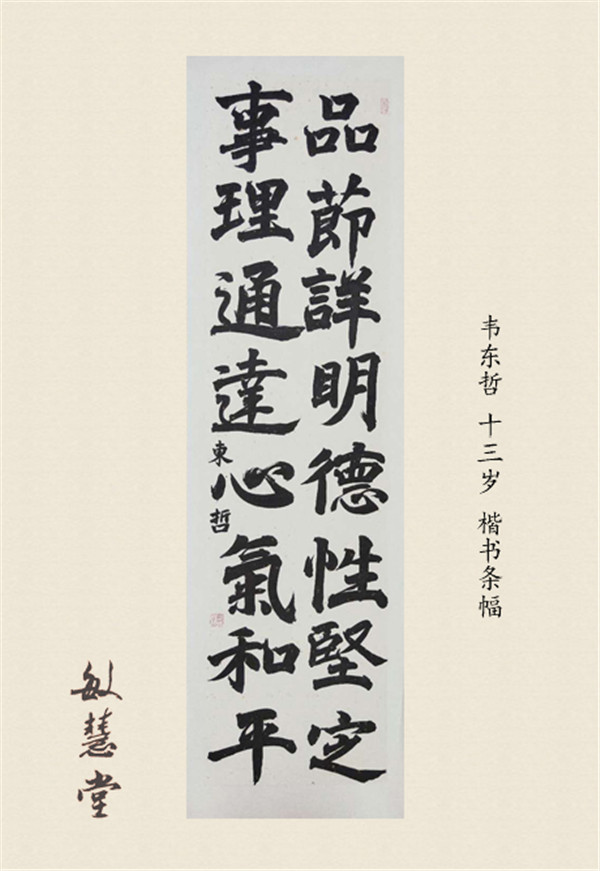 品節詳明德性堅定
事理通達心氣和平
東哲
韦东哲 十三岁 楷书条幅
敏慧堂